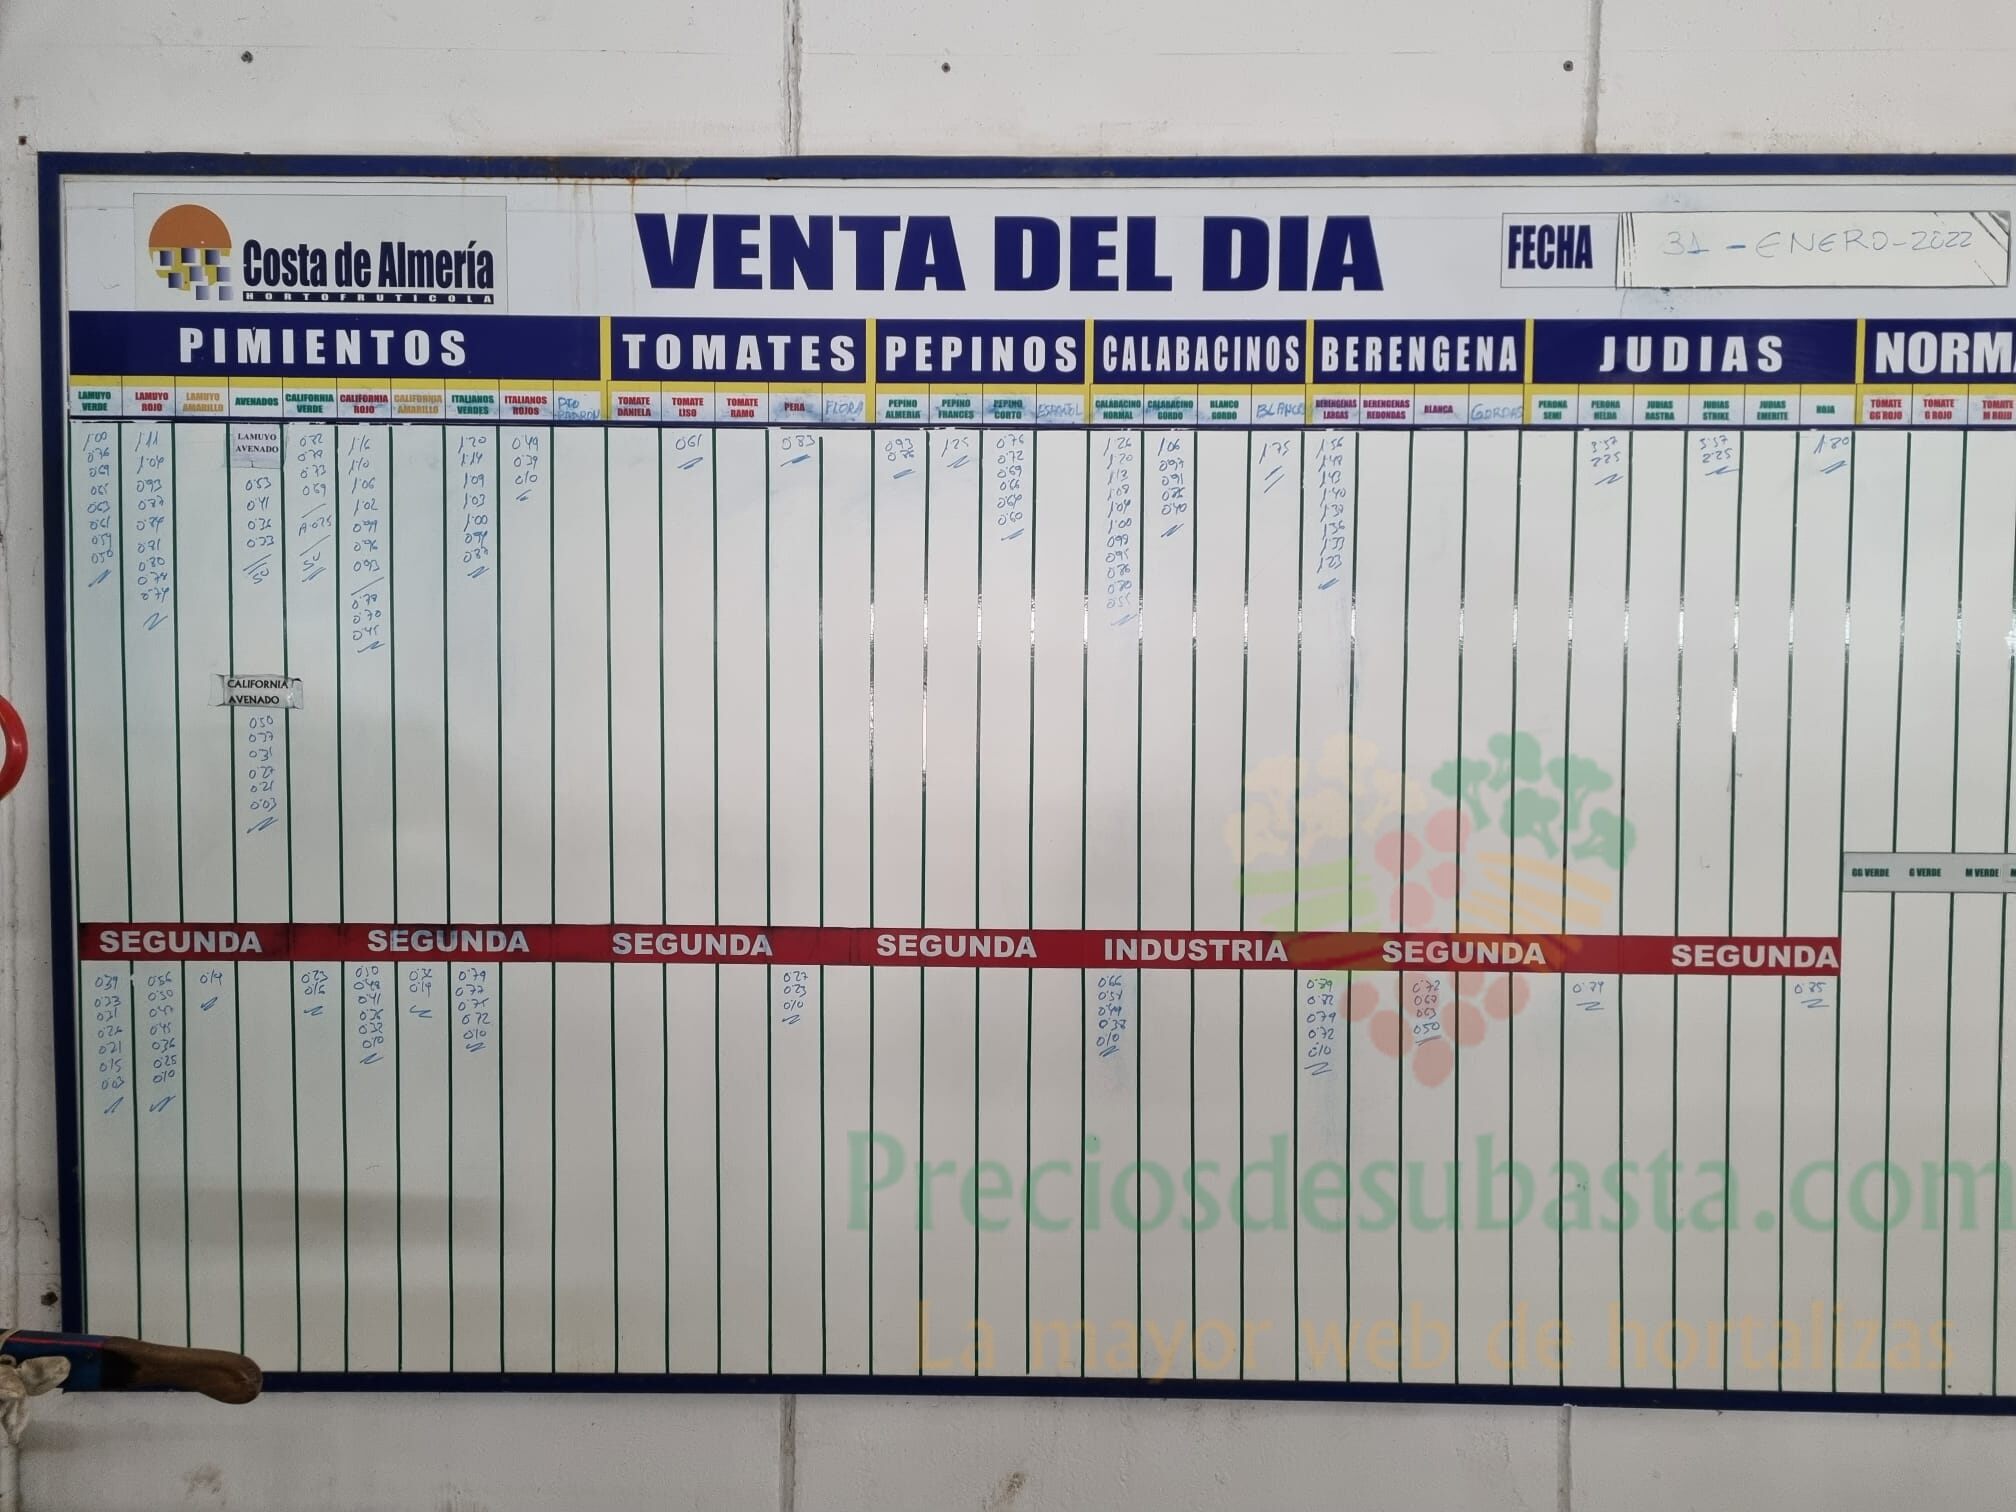 Costa de Almería
HORTOFRUTICOLA
VENTA DEL DIA
FECHA
31 - ENERO - 2022
PIMIENTOS TOMATES PEPINOS CALABACINOS BERENGENA JUDIAS NORMA
LAMUYO VERDE
LAMUYO ROJO
LAMUYO AMARILLO
AVENADOS
CALIFORNIA VERDE
CALIFORNIA ROJO
CALIFORNIA AMARILLO
ITALIANOS VERDES
ITALIANOS ROJOS
PTO PADRON
TOMATE DANIELA
TOMATE LISO
TOMATE RAMO
PERA
FLORA
PEPINO ALMERIA
PEPINO FRANCES
PEPINO CORTO
ESPAÑOL
CALABACINO NORMAL
CALABACINO GORDO
BLANCO GORDO
BLANCO
BERENGENAS LARGAS
BERENGENAS REDONDAS
BLANCA
GORDAS
PERONA SEMI
PERONA HELDA
JUDIAS RASTRA
JUDIAS STRIKE
JUDIAS EMERITE
ROJA
TOMATE GG ROJO
TOMATE G ROJO
TOMATE M ROJO
1.00
0.76
0.69
0.65
0.63
0.61
0.59
0.50
1.11
1.04
0.93
0.87
0.84
0.81
0.80
0.78
0.74
LAMUYO
AVENADO
0.53
0.41
0.36
0.33
0.73
0.69
1.16
1.10
1.06
1.02
0.99
0.96
0.93
0.78
0.70
0.45
1.20
1.14
1.09
1.03
1.00
0.94
0.87
0.49
0.39
0.10
0.61
0.83
0.93
0.86
1.25
0.76
0.72
0.69
0.66
0.64
0.60
1.26
1.20
1.13
1.08
1.04
1.00
0.99
0.95
0.86
0.80
0.55
1.06
0.97
0.91
0.86
0.40
1.75
1.56
1.48
1.43
1.40
1.38
1.36
1.33
1.23
3.57
2.25
3.57
2.25
1.80
CALIFORNIA
AVENADO
0.50
0.37
0.31
0.27
0.21
0.03
GG VERDE G VERDE M VERDE
SEGUNDA SEGUNDA SEGUNDA SEGUNDA INDUSTRIA SEGUNDA SEGUNDA
0.39
0.33
0.31
0.26
0.21
0.15
0.03
0.56
0.50
0.47
0.45
0.36
0.25
0.10
0.14
0.23
0.16
0.50
0.48
0.41
0.36
0.32
0.10
0.36
0.19
0.79
0.77
0.75
0.72
0.10
0.27
0.23
0.10
0.66
0.51
0.49
0.38
0.10
0.89
0.82
0.79
0.72
0.10
0.72
0.67
0.63
0.50
0.74
0.85
Preciosdesubasta.com
La mayor web de hortalizas